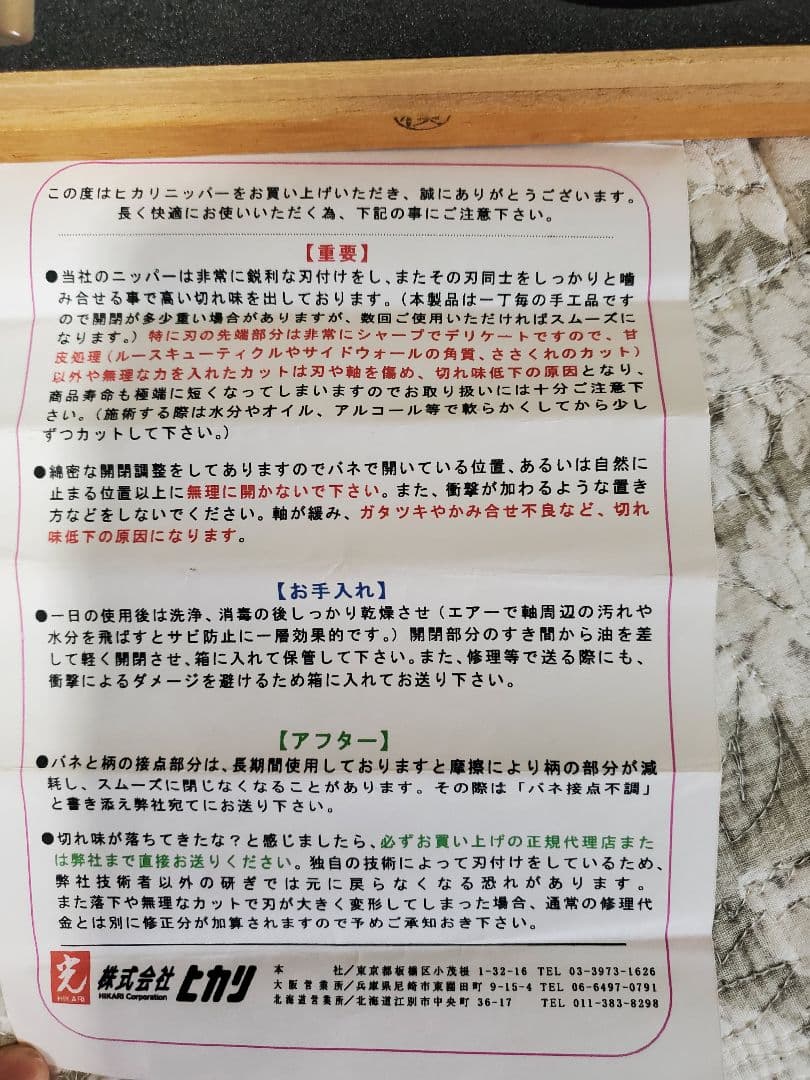 この度はヒカリニッパーをお買い上げいただき、誠にありがとうございます。
長く快適にお使いいただく為、下記の事にご注意下さい。
【重要】
●当社のニッパーは非常に鋭利な刃付けをし、またその刃同士をしっかりと噛
み合せる事で高い切れ味を出しております。（本製品は一丁毎の手工品です
ので開閉が多少重い場合がありますが、数回ご使用いただければスムーズに
なります。）特に刃の先端部分は非常にシャープでデリケートですので、甘
皮処理（ルースキューティクルやサイドウォールの角質、ささくれのカット）
以外や無理な力を入れたカットは刃や軸を傷め、切れ味低下の原因となり、
商品寿命も極端に短くなってしまいますのでお取り扱いには十分ご注意下
さい。（施術する際は水分やオイル、アルコール等で軟らかくしてから少し
ずつカットして下さい。）
●綿密な開閉調整をしてありますのでバネで開いている位置、あるいは自然に
止まる位置以上に無理に開かないで下さい。また、衝撃が加わるような置き
方などをしないでください。軸が緩み、ガタツキやかみ合せ不良など、切れ
味低下の原因になります。
【お手入れ】
●一日の使用後は洗浄、消毒の後しっかり乾燥させ（エアーで軸周辺の汚れや
水分を飛ばすとサビ防止に一層効果的です。）開閉部分のすき間から油を差
して軽く開閉させ、箱に入れて保管して下さい。また、修理等で送る際にも、
衝撃によるダメージを避けるため箱に入れてお送り下さい。
【アフター】
●バネと柄の接点部分は、長期間使用しておりますと摩擦により柄の部分が減
耗し、スムーズに閉じなくなることがあります。その際は「バネ接点不調」
と書き添え弊社宛てにお送り下さい。
●切れ味が落ちてきたな？と感じましたら、必ずお買い上げの正規代理店また
は弊社まで直接お送りください。独自の技術によって刃付けをしているため、
弊社技術者以外の研ぎでは元に戻らなくなる恐れがあります。
また落下や無理なカットで刃が大きく変形してしまった場合、通常の修理代
金とは別に修正分が加算されますので予めご承知おき下さい。
光 HIKARI 株式会社 ヒカリ HIKARI Corporation
本　　社／東京都板橋区小茂根 1-32-16 TEL 03-3973-1626
大阪営業所／兵庫県尼崎市東園田町 9-15-4 TEL 06-6497-0791
北海道営業所／北海道江別市中央町 36-17 TEL 011-383-8298